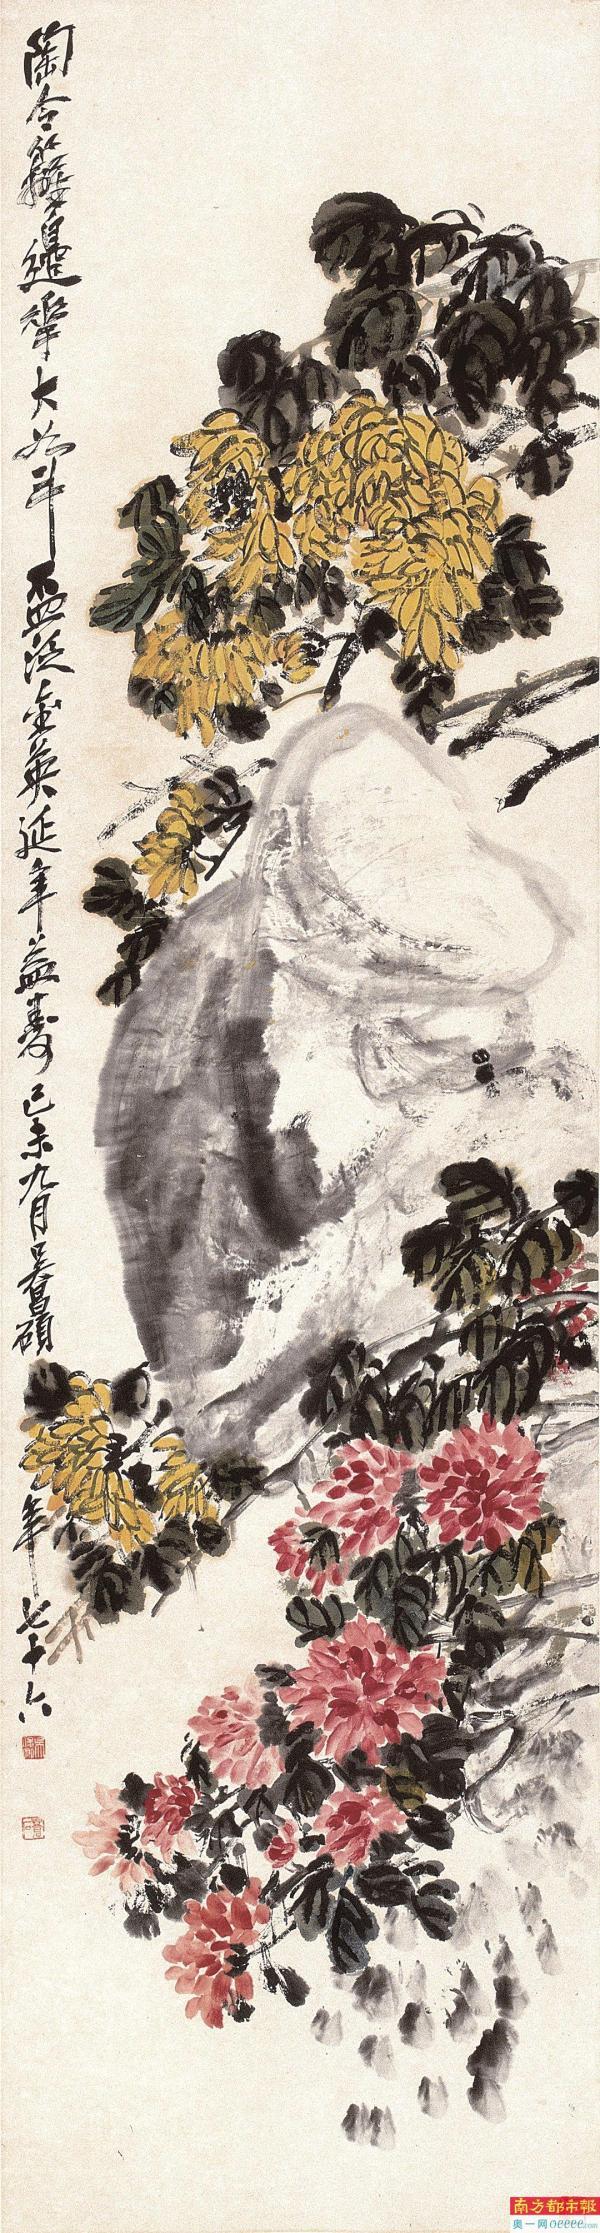 陶令籬邊華大如斗酒泛金英延年益壽己未九月吳昌碩
年七十六
南方都市報
奥一网oeeee.com